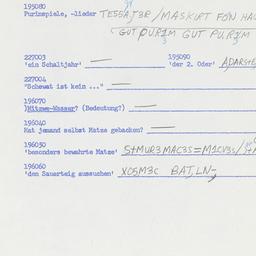 195080
Purimspiele, -lieder TESSA,TBR / MASKURT FON HA
GUT PURIM GUT PURIM
227003
'ein Schaltjahr' —
195090
'der 2. Oder' ADARSTE
227004
"Schewat ist kein ..." —
196070
)Mitzwe-Wasser? (Bedeutung?) —
196040
Hat jemand selbst Matze gebacken? —
196050
'besonders bewahrte Matze' STMUR3 MAC3S=M1CV3S/
196060
'den Sauerteig aussuchen' XO5M3C BATLN